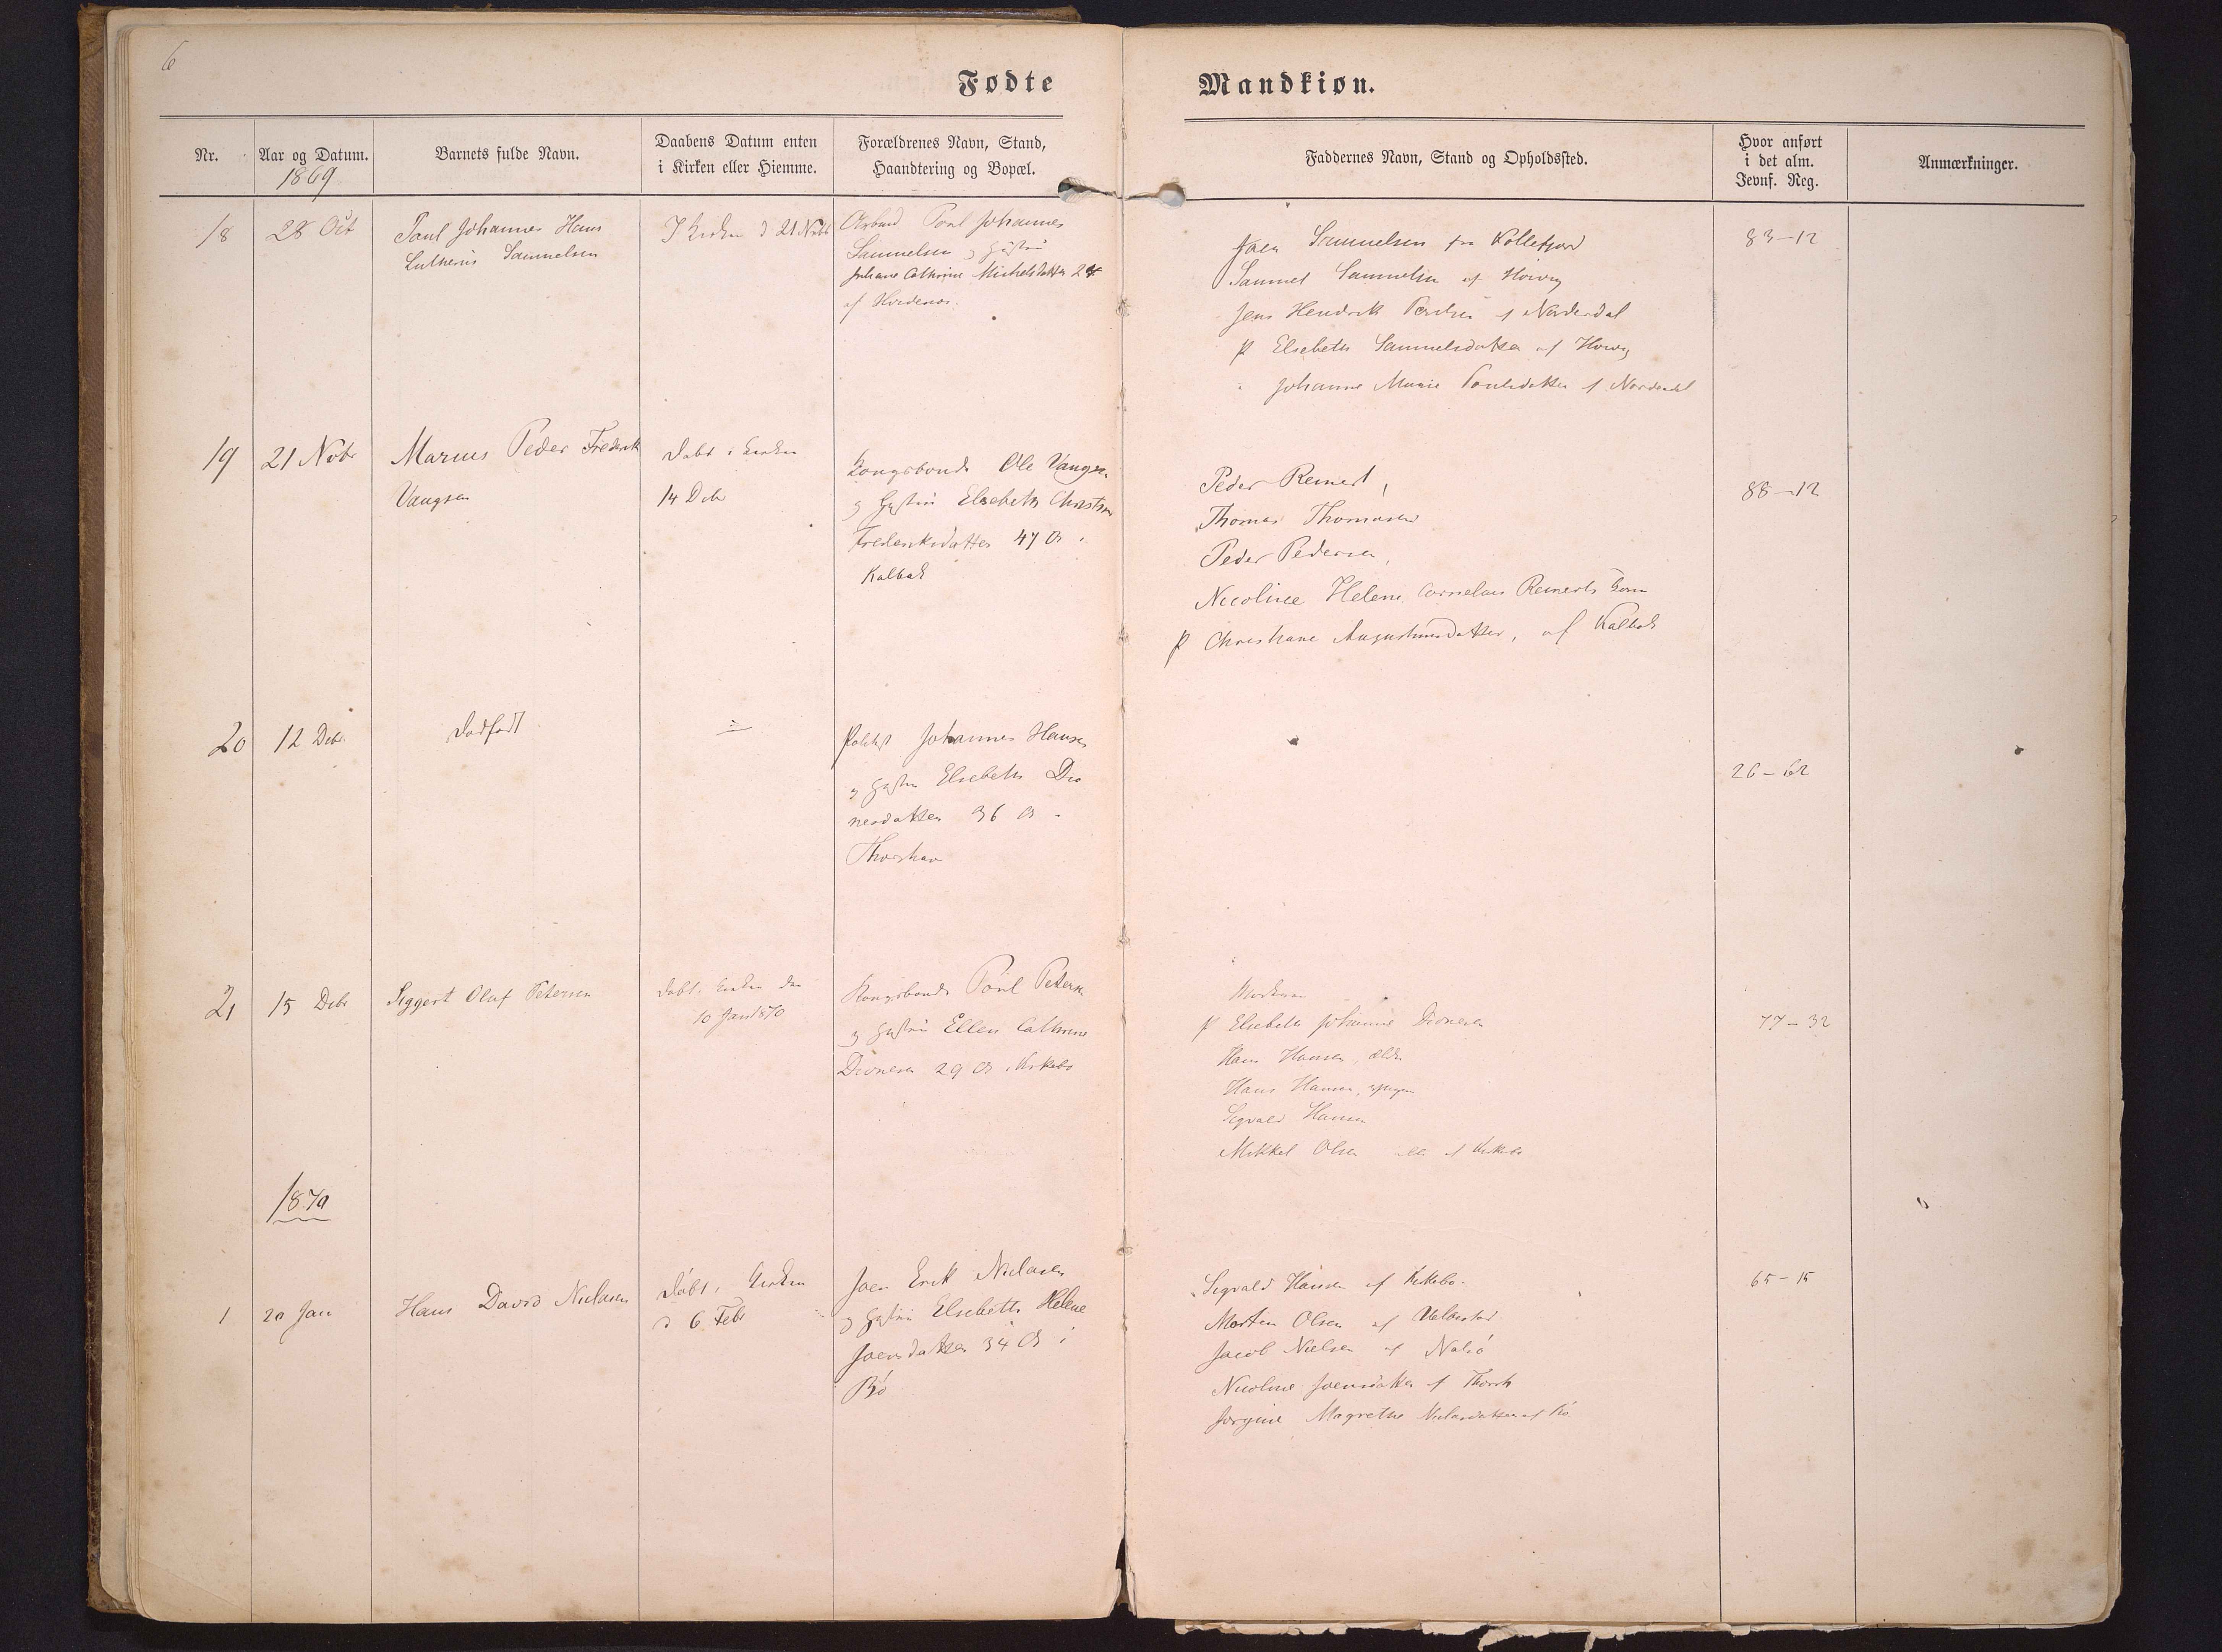 6
Fødte
Mandkiøn.
Nr.
Aar og Datum.
1869
Barnets fulde Navn.
Daabens Datum enten
i Kirken eller Hiemme.
Forældrenes Navn, Stand,
Haandtering og Bopæl.
Faddernes Navn, Stand og Opholdssted.
Hvor anført
i det alm.
Jevnf. Reg.
Anmærkninger.
18
28 Oct
Poul Johannes Hans
Lutherus Samuelsen
I Kirken d 21 Nobr
Poul Johannes
Samuelsen og Hustru
Johane Cathrine Michelsdatter
af
Joen Samuelsen fra Kollefjord
Samuel Samuelsen af Hoivig
Jens Hendrik Poulsen af Norderdal
Elsebeth Samuelsdatter af Hoivig
Johanne Marie Poulsdatter af Norderdal
83-12
19
21 Nobr
Marius Peder Frederik
Vangsen
Døbt i Kirken
14 Debr
Kongsbonde Ole Vangsen
og Hustru Elsebeth Christine
Frederiksdatter 47 Ar i
Kalbak
Peder Reinert,
Thomas Thomasen
Peder Pedersen,
Nicoline Helene Cornelius Reinerts Kone
Christiane Augustinusdatter, af Kalbak
88-12
20
12 Debr
Dødfødt
Johannes Hansen
og Hustru Elsebeth Dio
nesdatter 36 Ar
Thorshavn
26-62
21
15 Debr
Siggert Oluf Petersen
Døbt i Kirken den
10 Jan 1870
Kongsbonde Poul Petersen
og Hustru Ellen Cathrine
Dionesen 29 Ar i Kirkebø
Moderen
Elsebeth Johanne Dionesen
Hans Hansen, ældre
Hans Hansen, yngre
Sigvald Hansen
Mikkel Olsen alle af Kirkebø
77-32
1870
1
20 Jan
Hans David Niclasen
Døbt i Kirken
d 6 Febr
Joen Erik Niclasen
og Hustru Elsebeth Helene
Joensdatter 34 Ar i
Bø
Sigvald Hansen af Kirkebø
Morten Olsen af Velbestad
Jacob Nielsen af Nolsø
Nicoline Joensdatter af Thorsh
Jørgine Magrethe Niclasdatter af Bø
65-15